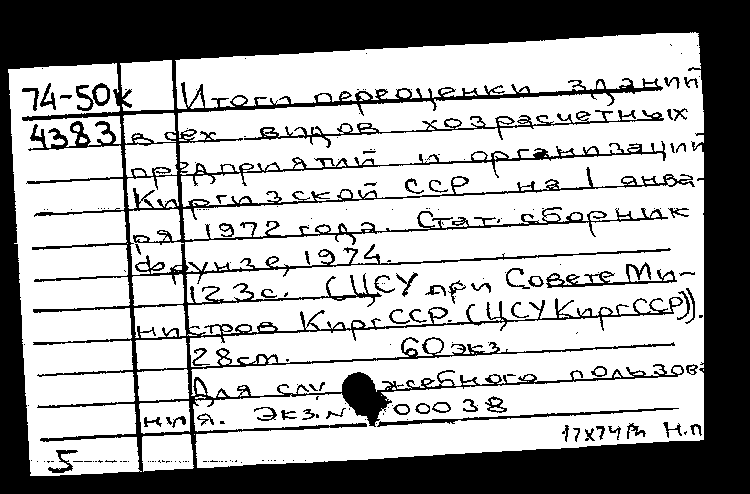 74-50к Итоги переоценки зданий
4383 всех видов хозрасчетных
предприятий и организаций
Киргизской ССР на 1 янва-
ря 1972 года. Стат. сборник
Фрунзе, 1974.
123с. (ЦСУ при Совете Ми-
нистров КиргССР (ЦСУ КиргССР)).
28см. 60экз.
Для служебного пользов
ния. Экз. N 00038
5 Н.п